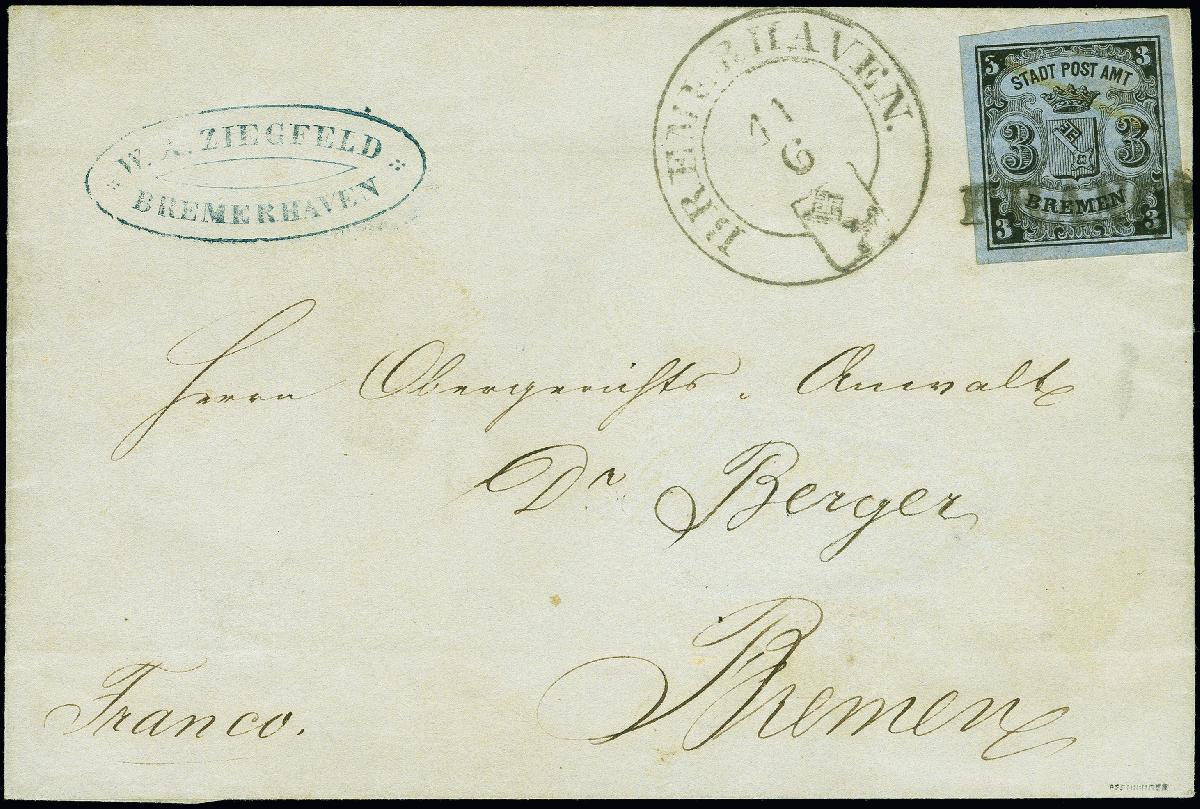 W. A. ZIEGFELD
BREMERHAVEN
BREMERHAVEN.
11
6
3 3
STADT POST AMT
3 3
BREMEN
3 3
Herrn Obergerichts. Anwalt
Dr Berger
Bremen
Franco.